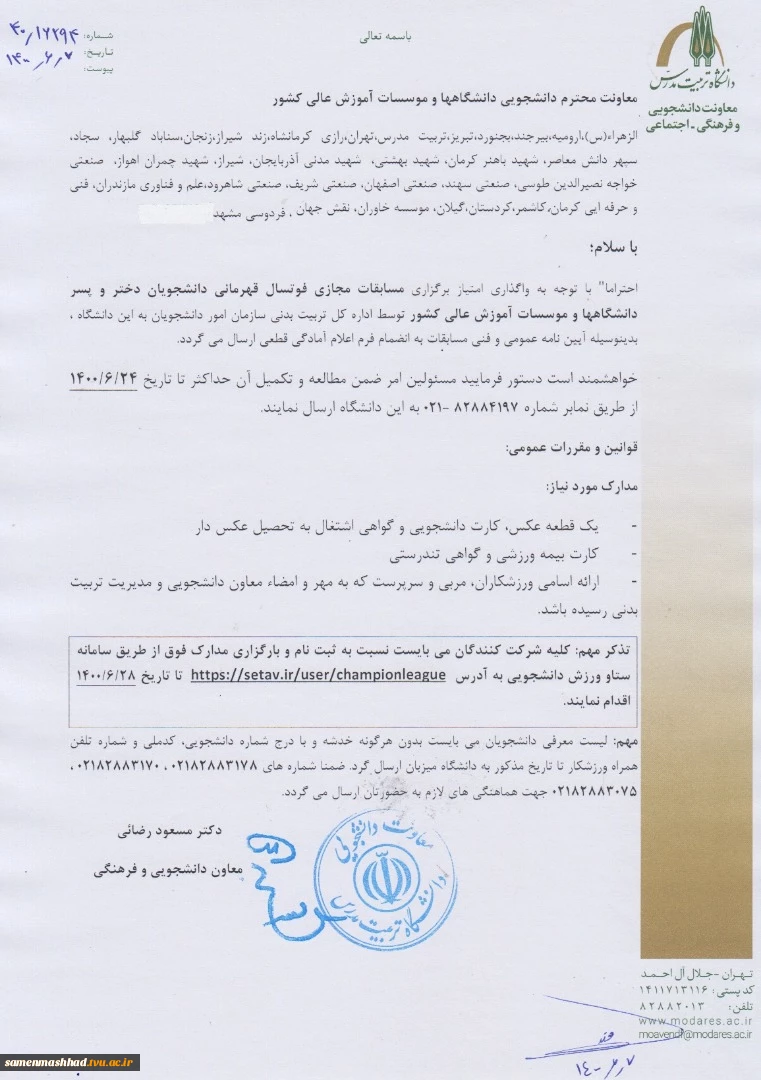 باسمه تعالی
شماره: ۴۰/۱۶۲۹۴
تاریخ: ۱۴۰۰/۶/۷
پیوست:
دانشگاه تربیت مدرس
معاونت دانشجویی
و فرهنگی - اجتماعی
معاونت محترم دانشجویی دانشگاهها و موسسات آموزش عالی کشور
الزهراء(س)،ارومیه،بیرجند،بجنورد،تبریز،تربیت مدرس،تهران،رازی کرمانشاه،زند شیراز،زنجان،سناباد گلبهار، سجاد،
سپهر دانش معاصر، شهید باهنر کرمان، شهید بهشتی، شهید مدنی آذربایجان، شیراز، شهید چمران اهواز، صنعتی
خواجه نصیرالدین طوسی، صنعتی سهند، صنعتی اصفهان، صنعتی شریف، صنعتی شاهرود،علم و فناوری مازندران، فنی
و حرفه ایی کرمان،کاشمر،کردستان،گیلان، موسسه خاوران، نقش جهان ، فردوسی مشهد
با سلام؛
احتراما" با توجه به واگذاری امتیاز برگزاری مسابقات مجازی فوتسال قهرمانی دانشجویان دختر و پسر
دانشگاهها و موسسات آموزش عالی کشور توسط اداره کل تربیت بدنی سازمان امور دانشجویان به این دانشگاه ،
بدینوسیله آیین نامه عمومی و فنی مسابقات به انضمام فرم اعلام آمادگی قطعی ارسال می گردد.
خواهشمند است دستور فرمایید مسئولین امر ضمن مطالعه و تکمیل آن حداکثر تا تاریخ ۱۴۰۰/۶/۲۴
از طریق نمابر شماره ۸۲۸۸۴۱۹۷ -۰۲۱ به این دانشگاه ارسال نمایند.
قوانین و مقررات عمومی:
مدارک مورد نیاز:
- یک قطعه عکس، کارت دانشجویی و گواهی اشتغال به تحصیل عکس دار
- کارت بیمه ورزشی و گواهی تندرستی
- ارائه اسامی ورزشکاران، مربی و سرپرست که به مهر و امضاء معاون دانشجویی و مدیریت تربیت
بدنی رسیده باشد.
تذکر مهم: کلیه شرکت کنندگان می بایست نسبت به ثبت نام و بارگزاری مدارک فوق از طریق سامانه
ستاو ورزش دانشجویی به آدرس https://setav.ir/user/championleague تا تاریخ ۱۴۰۰/۶/۲۸
اقدام نمایند.
مهم: لیست معرفی دانشجویان می بایست بدون هرگونه خدشه و با درج شماره دانشجویی، کدملی و شماره تلفن
همراه ورزشکار تا تاریخ مذکور به دانشگاه میزبان ارسال گرد. ضمنا شماره های ۰۲۱۸۲۸۸۳۱۷۸ ، ۰۲۱۸۲۸۸۳۱۷۰ ،
۰۲۱۸۲۸۸۳۰۷۵ جهت هماهنگی های لازم به حضورتان ارسال می گردد.
دکتر مسعود رضائی
معاون دانشجویی و فرهنگی
معاونت دانشجویی
دانشگاه تربیت مدرس
تهران - جلال آل احمد
کدپستی: ۱۴۱۱۷۱۳۱۱۶
تلفن: ۸۲۸۸۲۰۱۳
www.modares.ac.ir
moavendf@modares.ac.ir
۱۴۰۰/۶/۷
samenmashhad.tvu.ac.ir